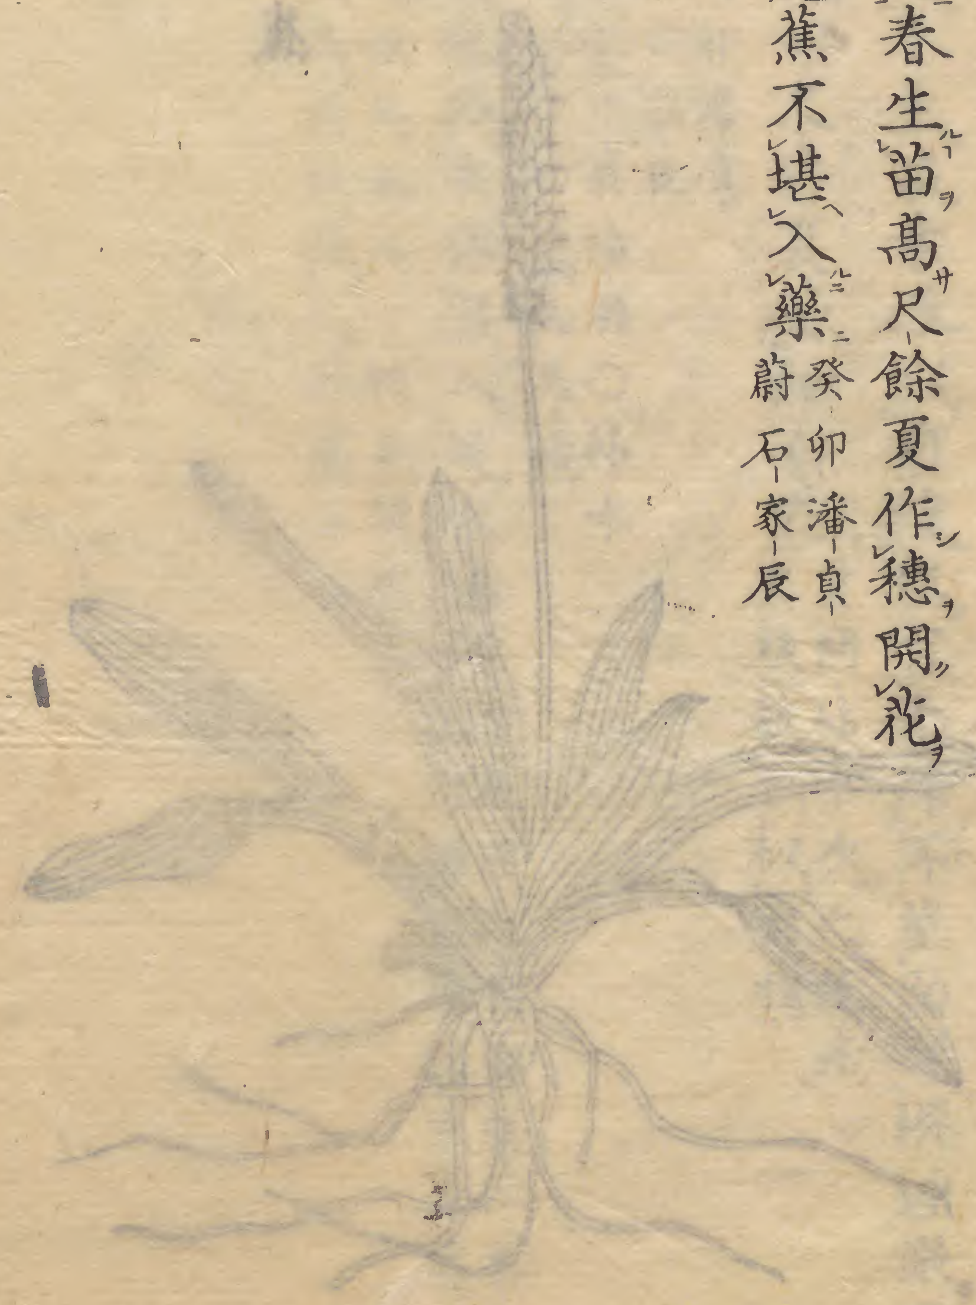 春生苗高尺餘夏作穗開花
蕉不堪入藥
癸卯潘貞
蔚石家辰